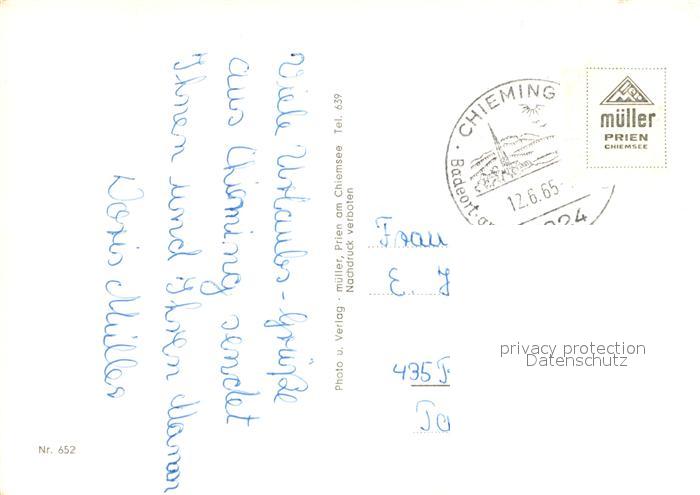 Viele Urlaubs-Grüße
aus Chieming sendet
Ihnen und Ihrem Mann
Doris Müller
Photo u. Verlag · müller, Prien am Chiemsee Tel. 639
Nachdruck verboten
CHIEMING
Badeort
12.6.65
müller
PRIEN
CHIEMSEE
Frau
E. J
435
privacy protection
Datenschutz
Nr. 652